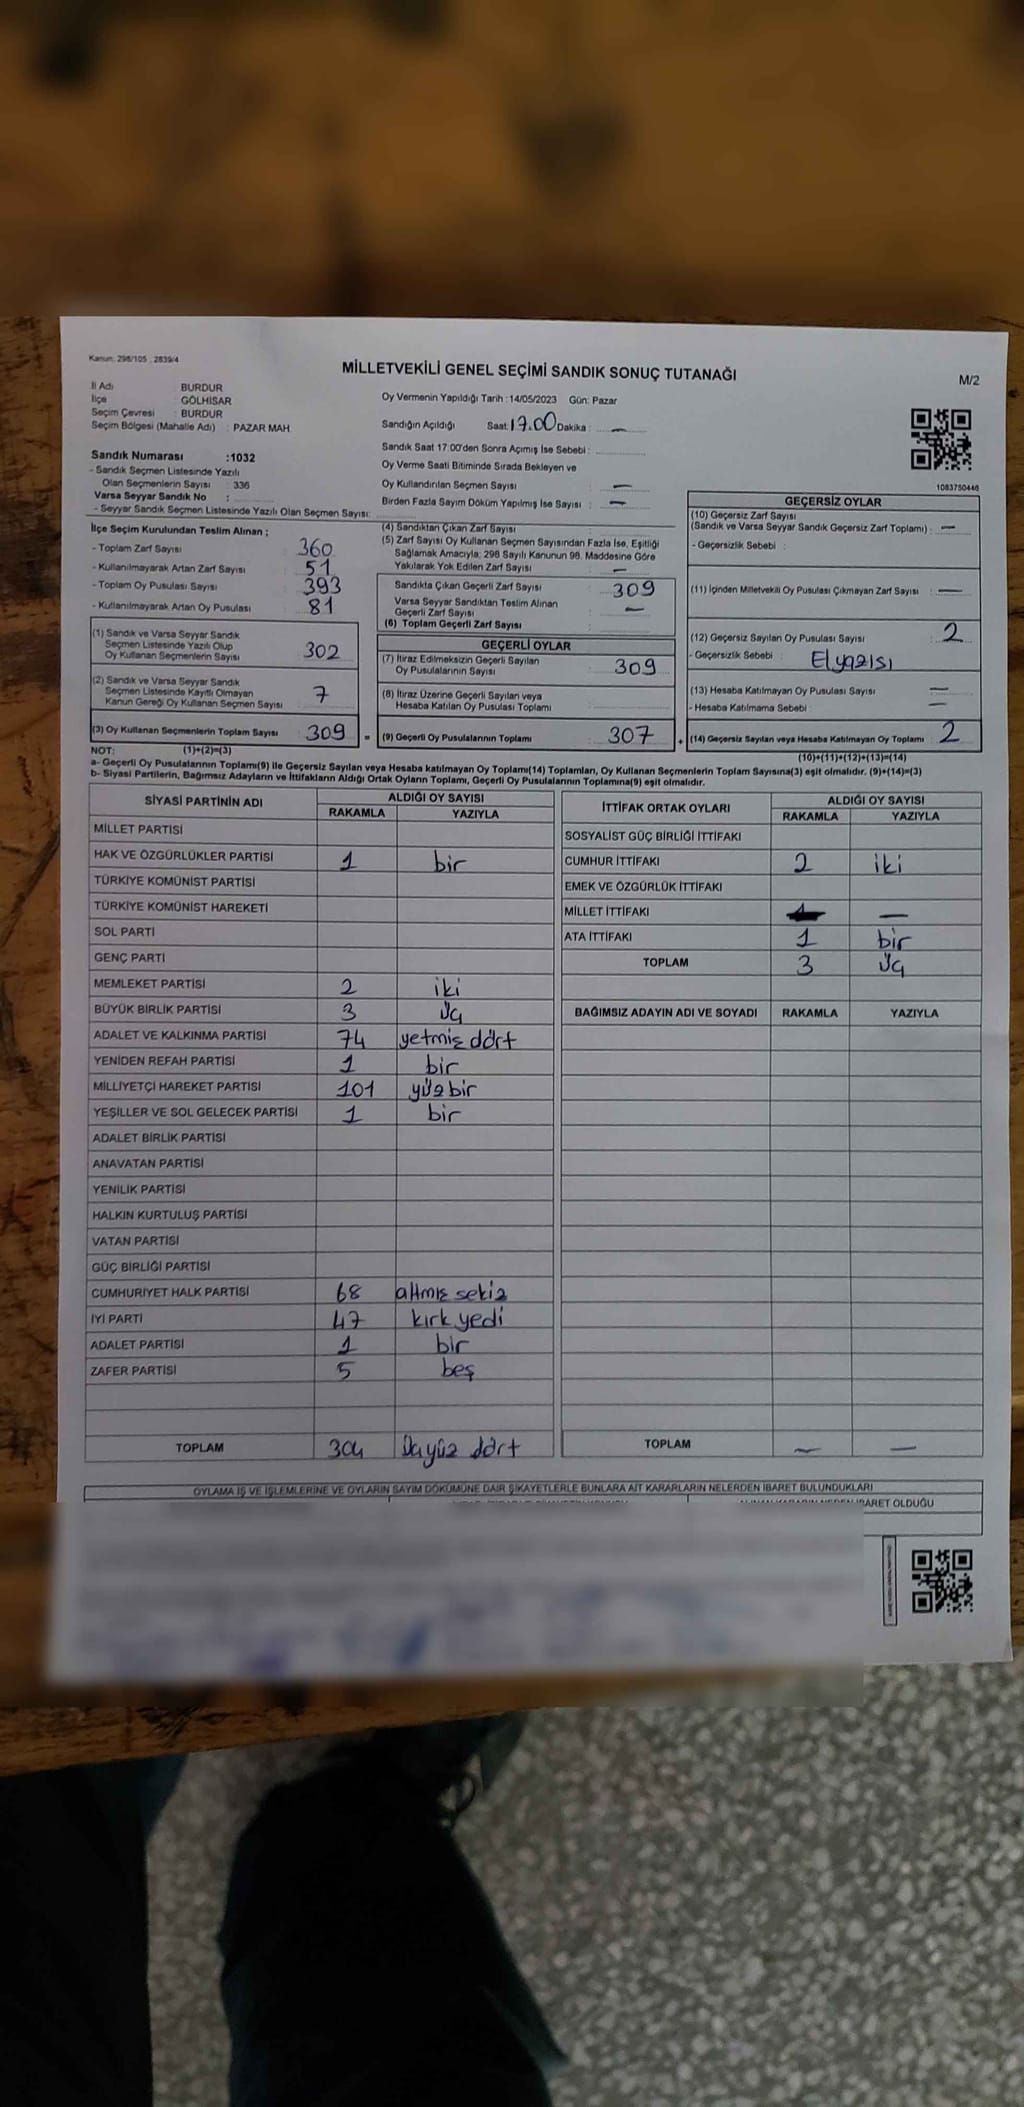 Kanun: 298/105 , 2839/4
MİLLETVEKİLİ GENEL SEÇİMİ SANDIK SONUÇ TUTANAĞI
M/2
İl Adı : BURDUR
İlçe : GÖLHİSAR
Seçim Çevresi : BURDUR
Seçim Bölgesi (Mahalle Adı) : PAZAR MAH.
Oy Vermenin Yapıldığı Tarih : 14/05/2023 Gün: Pazar
Sandığın Açıldığı Saat: 17.00 Dakika : —
Sandık Saat 17:00'den Sonra Açımış İse Sebebi :
Oy Verme Saati Bitiminde Sırada Bekleyen ve
Oy Kullandırılan Seçmen Sayısı —
Birden Fazla Sayım Döküm Yapılmış İse Sayısı : —
Sandık Numarası :1032
- Sandık Seçmen Listesinde Yazılı
Olan Seçmenlerin Sayısı : 336
Varsa Seyyar Sandık No :
- Seyyar Sandık Seçmen Listesinde Yazılı Olan Seçmen Sayısı:
1083750446
İlçe Seçim Kurulundan Teslim Alınan ;
- Toplam Zarf Sayısı : 360
- Kullanılmayarak Artan Zarf Sayısı : 51
- Toplam Oy Pusulası Sayısı : 393
- Kullanılmayarak Artan Oy Pusulası : 81
(1) Sandık ve Varsa Seyyar Sandık
Seçmen Listesinde Yazılı Olup
Oy Kullanan Seçmenlerin Sayısı : 302
(2) Sandık ve Varsa Seyyar Sandık
Seçmen Listesinde Kayıtlı Olmayan
Kanun Gereği Oy Kullanan Seçmen Sayısı : 7
(3) Oy Kullanan Seçmenlerin Toplam Sayısı : 309 =
(4) Sandıktan Çıkan Zarf Sayısı :
(5) Zarf Sayısı Oy Kullanan Seçmen Sayısından Fazla İse, Eşitliği
Sağlamak Amacıyla, 298 Sayılı Kanunun 98. Maddesine Göre
Yakılarak Yok Edilen Zarf Sayısı : —
Sandıkta Çıkan Geçerli Zarf Sayısı : 309
Varsa Seyyar Sandıktan Teslim Alınan
Geçerli Zarf Sayısı : —
(6) Toplam Geçerli Zarf Sayısı :
GEÇERLİ OYLAR
(7) İtiraz Edilmeksizin Geçerli Sayılan
Oy Pusulalarının Sayısı : 309
(8) İtiraz Üzerine Geçerli Sayılan veya
Hesaba Katılan Oy Pusulası Toplamı :
(9) Geçerli Oy Pusulalarının Toplamı : 307 +
GEÇERSİZ OYLAR
(10) Geçersiz Zarf Sayısı
(Sandık ve Varsa Seyyar Sandık Geçersiz Zarf Toplamı) : —
- Geçersizlik Sebebi :
(11) İçinden Milletvekili Oy Pusulası Çıkmayan Zarf Sayısı : —
(12) Geçersiz Sayılan Oy Pusulası Sayısı : 2
- Geçersizlik Sebebi : El yazısı
(13) Hesaba Katılmayan Oy Pusulası Sayısı : —
- Hesaba Katılmama Sebebi : —
(14) Geçersiz Sayılan veya Hesaba Katılmayan Oy Toplamı : 2
NOT: (1)+(2)=(3)
(10)+(11)+(12)+(13)=(14)
a- Geçerli Oy Pusulalarının Toplamı(9) ile Geçersiz Sayılan veya Hesaba katılmayan Oy Toplamı(14) Toplamları, Oy Kullanan Seçmenlerin Toplam Sayısına(3) eşit olmalıdır. (9)+(14)=(3)
b- Siyasi Partilerin, Bağımsız Adayların ve İttifakların Aldığı Ortak Oyların Toplamı, Geçerli Oy Pusulalarının Toplamına(9) eşit olmalıdır.
SİYASİ PARTİNİN ADI ALDIĞI OY SAYISI
RAKAMLA YAZIYLA
MİLLET PARTİSİ
HAK VE ÖZGÜRLÜKLER PARTİSİ 1 bir
TÜRKİYE KOMÜNİST PARTİSİ
TÜRKİYE KOMÜNİST HAREKETİ
SOL PARTİ
GENÇ PARTİ
MEMLEKET PARTİSİ 2 iki
BÜYÜK BİRLİK PARTİSİ 3 Üç
ADALET VE KALKINMA PARTİSİ 74 yetmiş dört
YENİDEN REFAH PARTİSİ 1 bir
MİLLİYETÇİ HAREKET PARTİSİ 101 yüz bir
YEŞİLLER VE SOL GELECEK PARTİSİ 1 bir
ADALET BİRLİK PARTİSİ
ANAVATAN PARTİSİ
YENİLİK PARTİSİ
HALKIN KURTULUŞ PARTİSİ
VATAN PARTİSİ
GÜÇ BİRLİĞİ PARTİSİ
CUMHURİYET HALK PARTİSİ 68 altmış sekiz
İYİ PARTİ 47 kırk yedi
ADALET PARTİSİ 1 bir
ZAFER PARTİSİ 5 beş
TOPLAM 304 Üçyüz dört
İTTİFAK ORTAK OYLARI ALDIĞI OY SAYISI
RAKAMLA YAZIYLA
SOSYALİST GÜÇ BİRLİĞİ İTTİFAKI
CUMHUR İTTİFAKI 2 iki
EMEK VE ÖZGÜRLÜK İTTİFAKI
MİLLET İTTİFAKI —
ATA İTTİFAKI 1 bir
TOPLAM 3 Üç
BAĞIMSIZ ADAYIN ADI VE SOYADI RAKAMLA YAZIYLA
TOPLAM — —
OYLAMA İŞ VE İŞLEMLERİNE VE OYLARIN SAYIM DÖKÜMÜNE DAİR ŞİKAYETLERLE BUNLARA AİT KARARLARIN NELERDEN İBARET BULUNDUKLARI
OLDUĞU